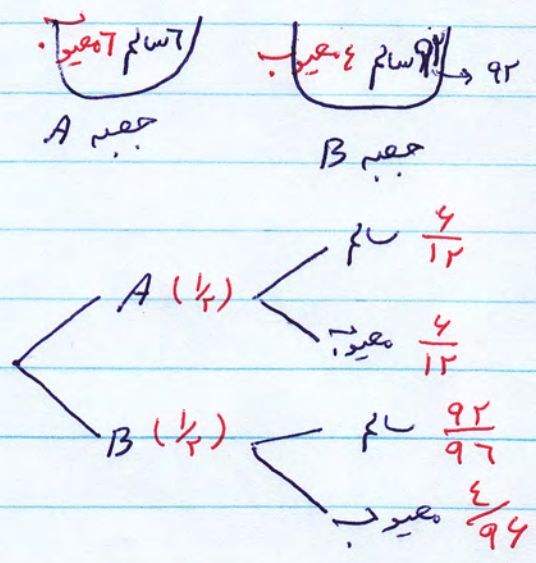 ۶ سالم ۶ معیوب
۹۲ سالم ۴ معیوب → ۹۲
جعبه A
جعبه B
A (۱/۲)
سالم ۶/۱۲
معیوب ۶/۱۲
B (۱/۲)
سالم ۹۲/۹۶
معیوب ۴/۹۶